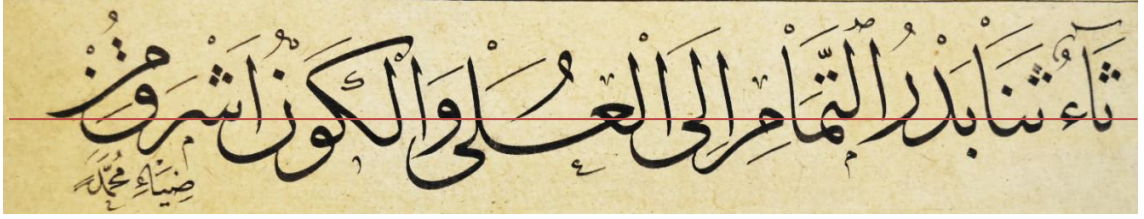 ثَآءُ ثَنَا بَدْرُ التَّمَامِ اِلَى الْعُلَى وَالْكَوْنُ اَشْرَقَ مِنْ
ضِيَاءِ مُحَمَّدٍ